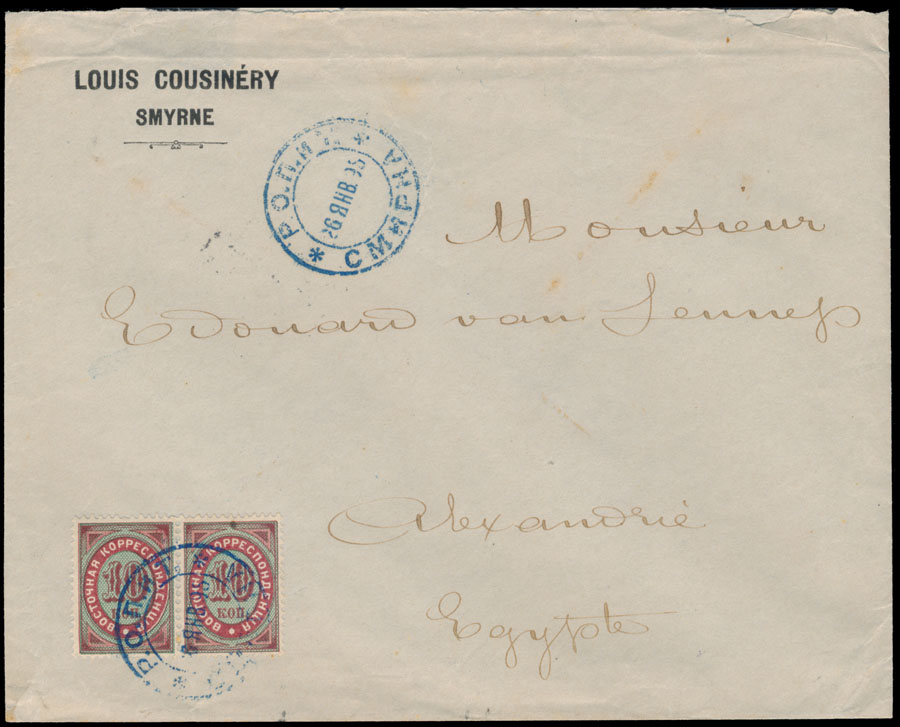 LOUIS COUSINÉRY
SMYRNE
Р.О.П.и Т. * СМИРНА *
Monsieur
Edouard van Lennep
Alexandrie
Egypte
ВОСТОЧНАЯ КОРРЕСПОНДЕНЦІЯ
10
КОП.
ВОСТОЧНАЯ КОРРЕСПОНДЕНЦІЯ
10
КОП.
Р.О.П.и Т.